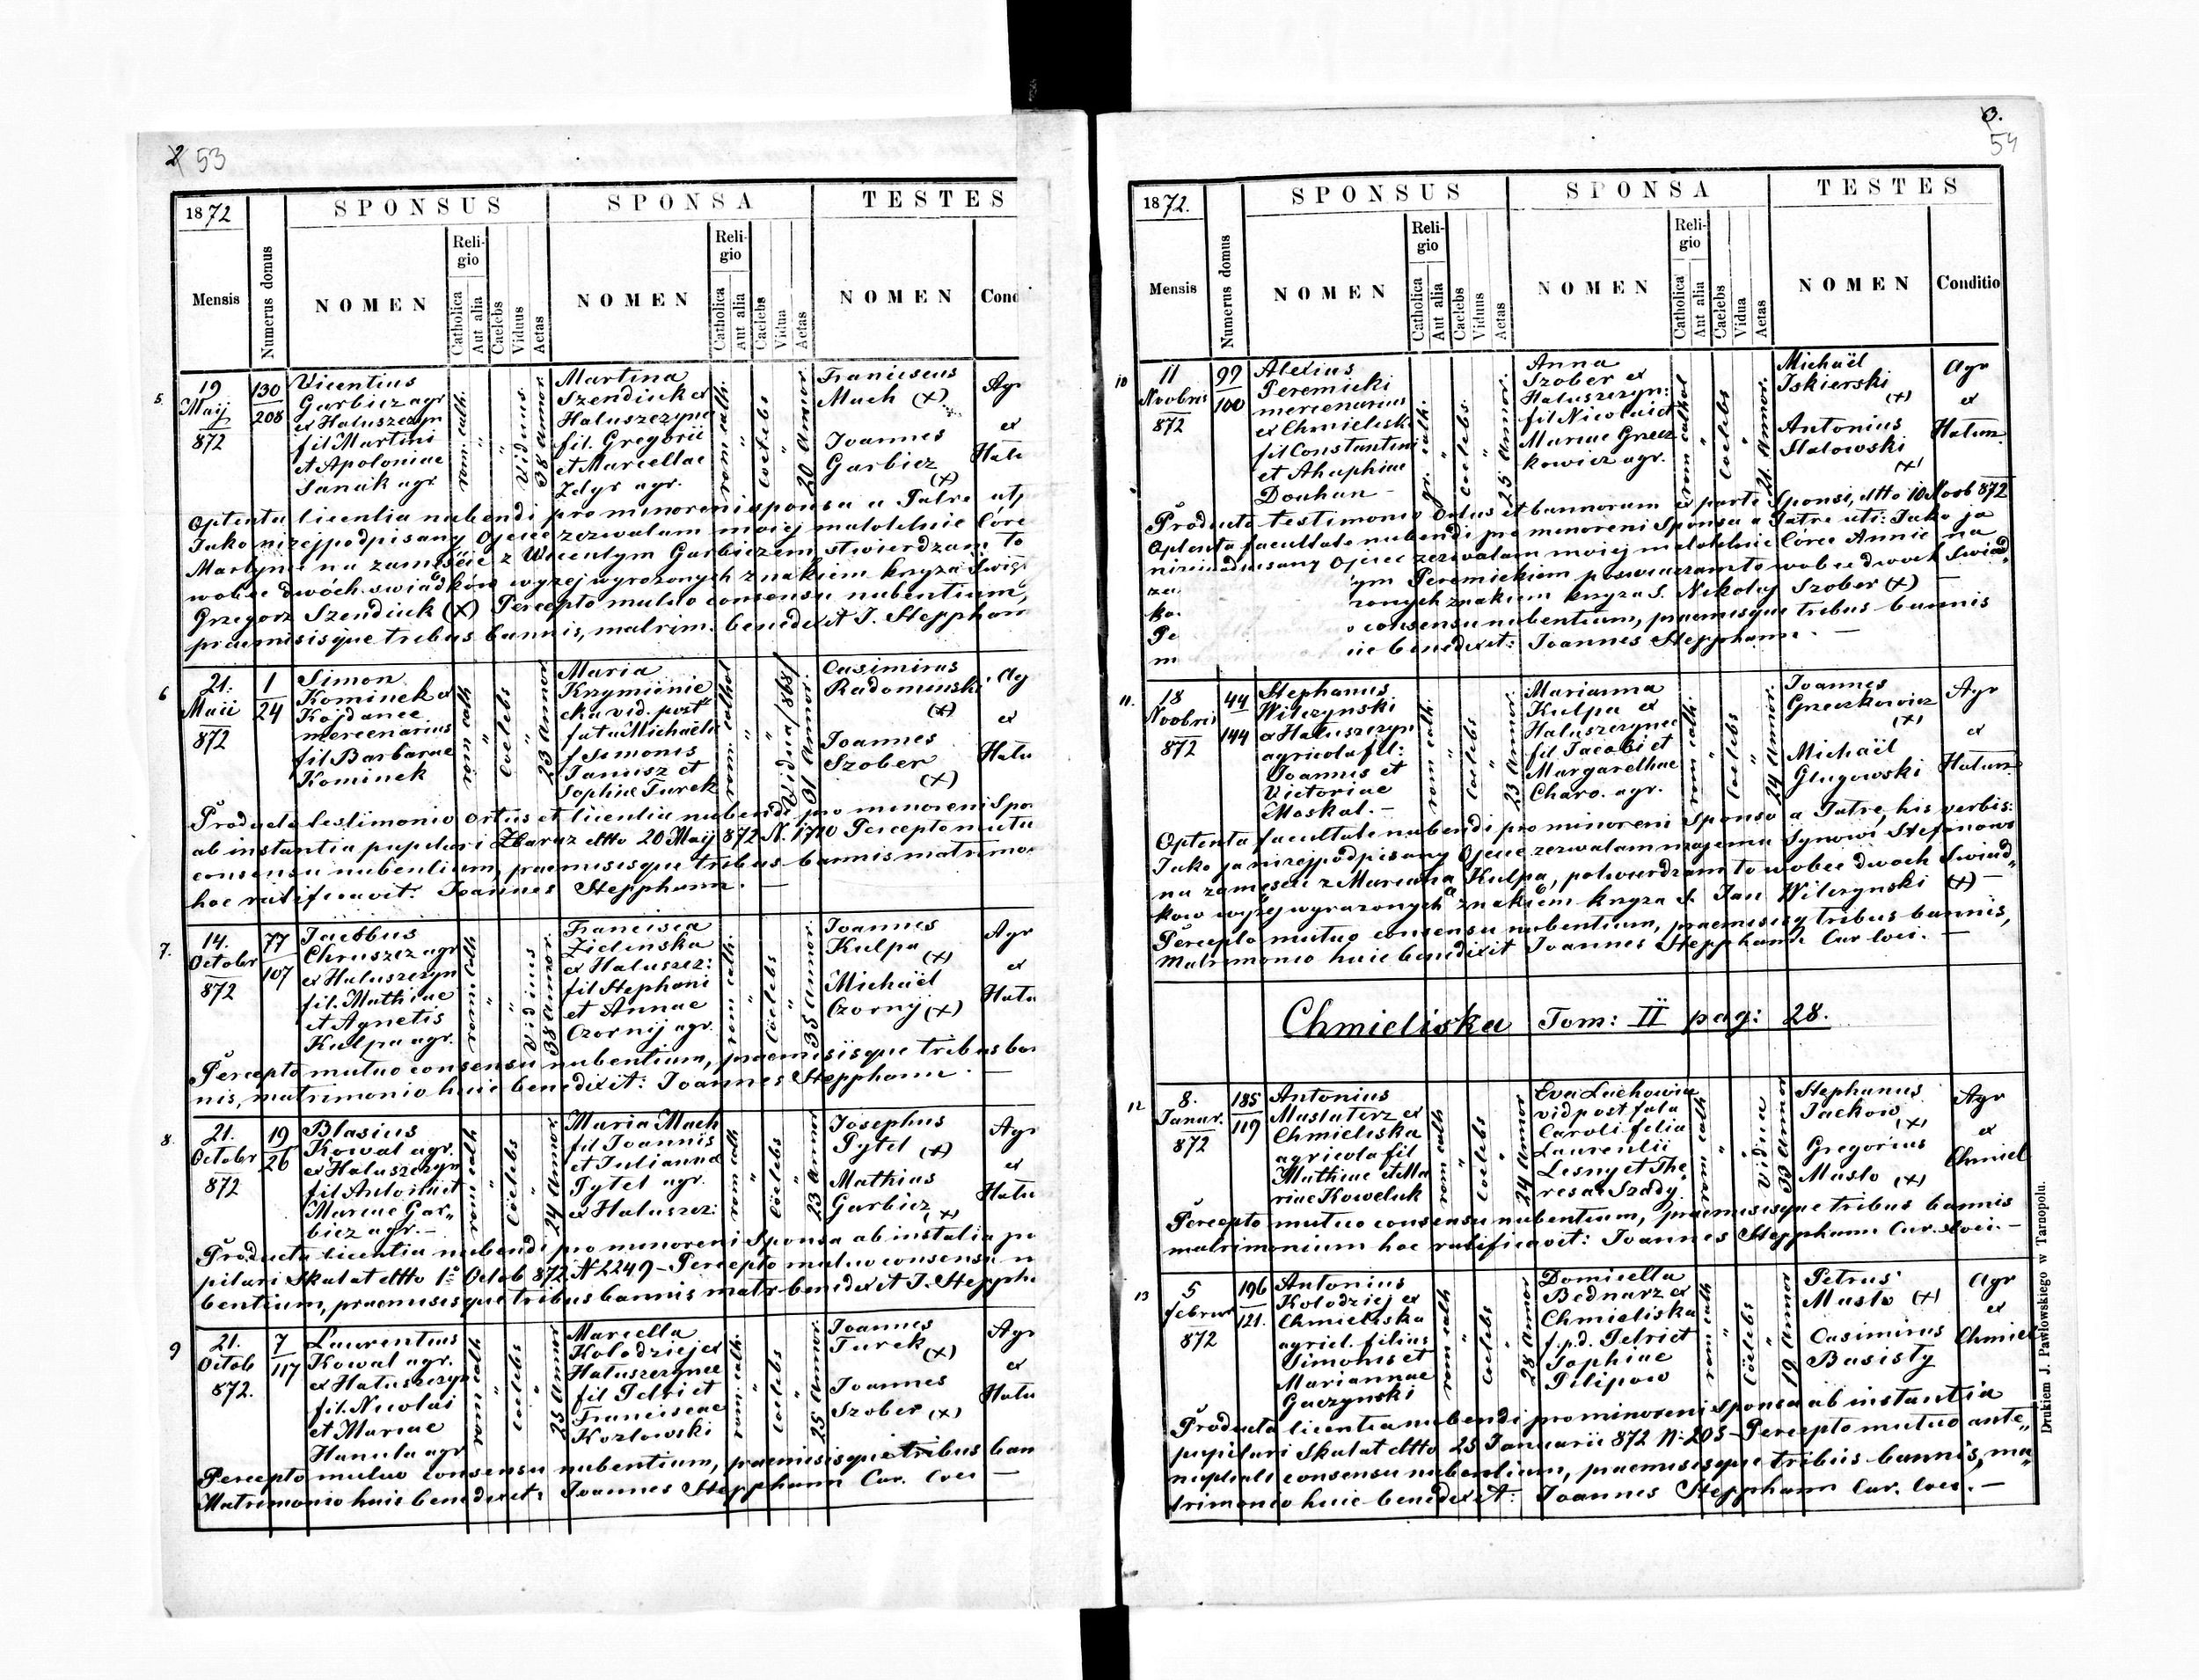 2 53
1872
SPONSUS
SPONSA
TESTES
Mensis
Numerus domus
NOMEN
Religio
Catholica
Aut alia
Caelebs
Viduus
Aetas
NOMEN
Religio
Catholica
Aut alia
Caelebs
Vidua
Aetas
NOMEN
Cond
5.
19
Maij
872
130
208
Vicentius
Garbicz agr
ex Haluszczyn
fil Martini
et Apoloniae
Sanak agr
rom cath.
Viduus.
38 annor
Martina
Szendiuk ex
Haluszczyna
fil. Gregorii
et Marcellae
Zdyr agr.
rom cath.
coelebs
20 Annor.
Franciscus
Mach (x)
Joannes
Garbicz
(x)
Agr
ex
Halu
Optenta licentia nubendi pro minoreni sponsa a Patre utp
Jako niżejpodpisany Ojciec zezwalam mojej małoletnie Córe
Martynie na zamęście z Wicentym Garbiczem stwierdzam to
wobec dwóch świadków wyżej wyrażonych znakiem krzyża Swię
Grzegorz Szendiuk (x) Percepto mutuo consensu nubentium,
praemisisque tribus bannis, matrim. benedixit J. Stepphan
6
21.
Maii
872
1
24
Simon
Kominek ex
Kojdance
mercenarius
fil Barbarae
Kominek
rom cath
Coelebs
23 annor
Maria
Krzymienie
cka vid. post
fata Michaelis
f Simonis
Janusz et
Sophiae Turek
rom cathol
Vidua/868/
31 annor.
Casimirus
Radominski
(x)
Joannes
Szober
(x)
Ag
ex
Halu
Producto testimonio ortus et licentia nubendi pro minoreni Spo
ab instantia pupilari Zbaraz dtto 20 Maij 872 N. 1720 Percepto mutu
consensu nubentium, praemisisque tribus bannis matrimo
hoc ratificavit. Joannes Stepphann. —
7.
14.
Octobr
872
77
107
Jacobus
Chruszcz agr
ex Haluszczyn
fil. Mathiae
et Agnetis
Kulpa agr.
rom cath
Viduus
38 annor.
Francisca
Zielinska
ex Haluszcz:
fil Stephani
et Annae
Czornij agr.
rom cath.
Cöelebs
35 annor.
Joannes
Kulpa
(x)
Michaël
Czornÿ (x)
Agr
ex
Halu
Percepto mutuo consensu nubentium, praemisisque tribus ban
nis, matrimonio huic benedixit: Joannes Stepphann. —
8.
21.
Octobr
872
19
26
Blasius
Kowal agr.
ex Haluszczyn
fil Antonii et
Mariae Gar„
bicz agr. —
rom cath
Cöelebs
24 annor.
Maria Mach
fil Joannis
et Julianna
Pytel agr.
ex Haluszcz:
rom cath
Cöelebs
23 annor
Josephus
Pytel (x)
Mathias
Garbicz
(x)
Agr
ex
Halu
Producta licentia nubendi pro minoreni Sponsa ab instatia pu
pilari Skalat dtto 1a Octob 872 N 2249 – Percepto mutuo consensu n
bentium, praemisisque tribus bannis matr benedixit J. Stepph
9
21.
Octob
872.
7
117
Laurentius
Kowal agr.
ex Haluszczyn
fil. Nicolai
et Mariae
Hanula agr
rom cath
Coelebs
25 annor
Marcella
Kolodziej ex
Haluszczynce
fil Petri et
Franciscae
Kozlowski
rom cath.
Cöelebs
25 annor.
Joannes
Turek
(x)
Joannes
Szober (x)
Agr
ex
Halu
Percepto mutuo consensu nubentium, praemisisque tribus ban
Matrimonio huic benedixit: Joannes Stepphann Cur. loci —
3.
54
1872.
SPONSUS
SPONSA
TESTES
Mensis
Numerus domus
NOMEN
Religio
Catholica
Aut alia
Caelebs
Viduus
Aetas
NOMEN
Religio
Catholica
Aut alia
Caelebs
Vidua
Aetas
NOMEN
Conditio
10
11
Novbris
872
99
100
Alexius
Peremicki
mercenarius
ex Chmielisk
fil Constantini
et Ahaphiae
Douhan –
gr. cath.
Coelebs.
25 annor.
Anna
Szober ex
Haluszczyn:
fil Nicolai et
Mariae Grecz
kowicz agr.
rom cathol
Coelebs
21 Annor.
Michaël
Iskierski
(x)
Antonius
Stalowski
(x)
Agr
ex
Halusz
Producto testimonio Ortus et bannorum ex parte Sponsi, dtto 10 Novb 872
Optenta facultate nubendi pro minoreni Sponsa a Patre uti: Jako ja
Ojciec zezwalam mojej małoletnie Córce Annie na
za
ym Peremickiem poswiaczam to wobec dwoch Swiad„
ko
zonych znakiem krzyza S. Nikolaj Szober (x) —
Pe
o consensu nubentium, praemisisque tribus bannis
m
uic benedixit: Joannes Stepphann. —
11.
18
Novbris
872
44
144
Stephanus
Wilczynski
a Haluszczyn
agricola fil:
Joannis et
Victoriae
Moskal. –
rom cath.
Coelebs
23 annor.
Marianna
Kulpa ex
Haluszczynce
fil Jacobi et
Margarethae
Charo. agr.
rom cath.
Coelebs
24 annor.
Joannes
Greczkowicz
(x)
Michaël
Glugowski
Agr
ex
Halusz
Optenta facultate nubendi pro minoreni Sponso a Patre, his verbis:
Jako ja nizejpodpisany Ojciec zezwalam mojemu Synowi Stefanowi
na zamęscie z Marianą Kulpą, potwierdzam to wobec dwoch Swiad„
kow wyżej wyrazonych znakiem krzyza S. Jan Wilczynski (x) —
Percepto mutuo consensu nubentium, praemisisq tribus bannis,
Matrimonio huic benedixit Joannes Stepphann Cur loci. —
Chmieliska Tom: II pag: 28.
12
8.
Januar.
872
185
119
Antonius
Maslaterz ex
Chmieliska
agricola fil
Mathiae et Ma
riae Koweluk
rom cath
Coelebs
24 annor
Eva Lachowicz
vid post fata
Caroli felia
Laurentii
Lesny et The
resae Szady
rom cath
Vidua
33 annor
Stephanus
Jackow
(x)
Gregorius
Maslo (x)
Agr
ex
Chmiel
Percepto mutuo consensu nubentium, praemisisque tribus bannis
matrimonium hoc ratificavit: Joannes Stepphann Cur. loci. —
13
5
februar
872
196
121.
Antonius
Kolodziej ex
Chmieliska
agricl. filius
Simonis et
Mariannae
Guczynski
rom cath
Coelebs
28 annor
Domicella
Bednarz ex
Chmieliska
f.p.d. Petri et
Sophiae
Pilipow
rom cath
Cöelebs
19 annor
Petrus
Maslo (x)
Casimirus
Basisty
Agr
ex
Chmiel
Producta licentia nubendi pro minoreni sponsa ab instantia
pupilari Skalat dtto 25 Januarii 872 N: 205 – Percepto mutuo ante„
nuptiali consensu nubentium, praemisisque tribus bannis, ma„
trimonio huic benedixit: Joannes Stepphann Cur. loci. —
Drukiem J. Pawłowskiego w Tarnopolu.